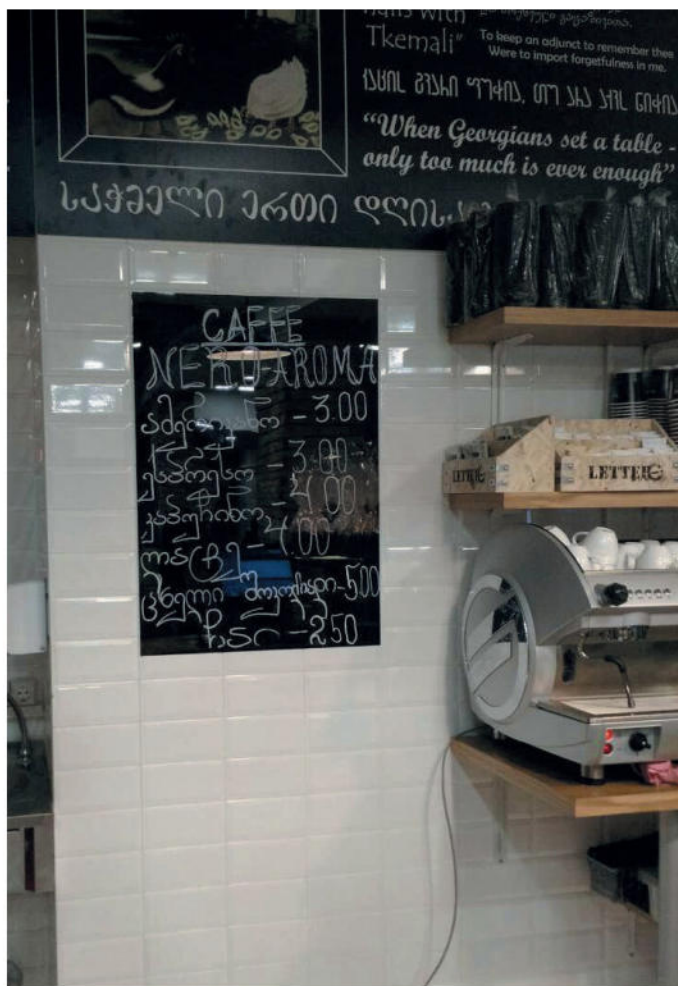 with
Tkemali"
To keep an adjunct to remember thee
Were to import forgetfulness in me.
კაცის გვარი ფუჭია, თუ არა აქვს ნიჭია
"When Georgians set a table -
only too much is ever enough"
საჭმელი ერთი დღისაა
CAFFE
NERO AROMA
ამერიკანო - 3.00
ესპრესო - 3.00
კაპუჩინო - 4.00
ლატე - 4.00
ცხელი შოკოლადი - 5.00
ჩაი - 2.50
LETTER
LETTER